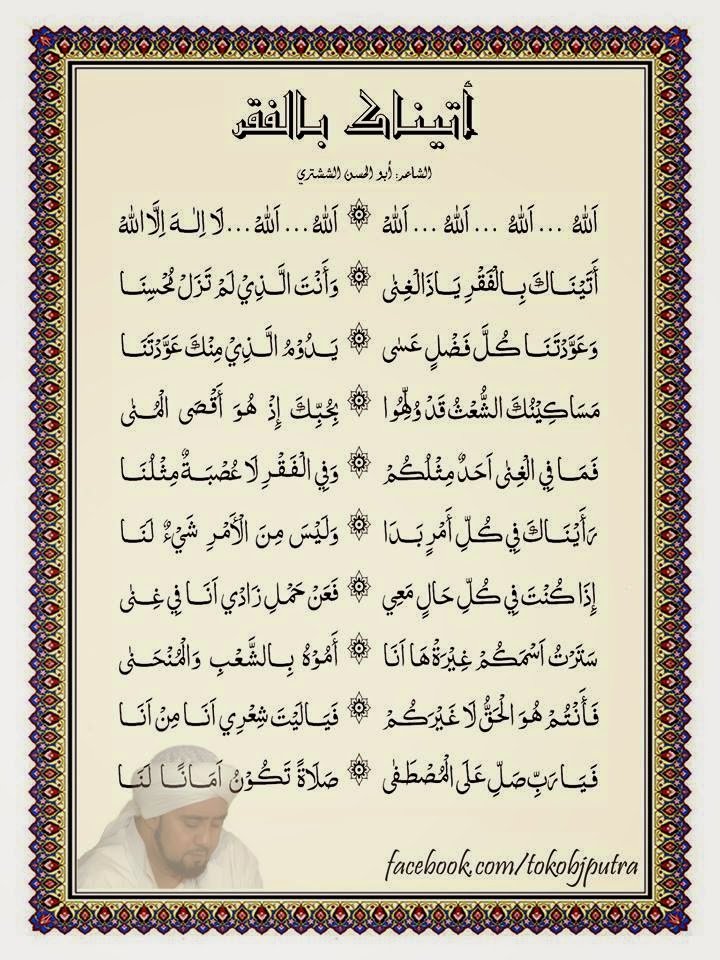 أتيناك بالفقر
الشاعر: أبو الحسن الششتري
اَللهُ ... اَللهُ ... اَللهُ ... اَللهْ ۞ اَللهُ ... اَللهْ ... لَا اِلٰـهَ اِلَّا اللهْ
أَتَيْنَـاكَ بِـالْفَقْرِ يَـا ذَا الْغِنٰى ۞ وَأَنْتَ الَّـذِيْ لَمْ تَزَلْ مُحْسِنَـا
وَعَوَّدْتَنَـا كُلَّ فَضْلٍ عَسٰى ۞ يَـدُوْمُ الَّـذِيْ مِنْكَ عَوَّدْتَنَـا
مَسَاكِيْنُكَ الشُّعْثُ قَدْ وُلِّهُوا ۞ بِحُبِّكَ إِذْ هُوَ أَقْصَى الْمُنٰى
فَمَـا فِي الْغِنٰى أَحَدٌ مِثْلُكُمْ ۞ وَفِي الْفَقْرِ لَا عُصْبَـةٌ مِثْلُنَـا
رَأَيْنَـاكَ فِي كُلِّ أَمْرٍ بَـدَا ۞ وَلَيْسَ مِنَ الْأَمْرِ شَيْءٌ لَنَـا
إِذَا كُنْتَ فِي كُلِّ حَالٍ مَعِي ۞ فَعَنْ حَمْلِ زَادِيْ اَنَـا فِي غِنٰى
سَتَرْتُ اَسْمَكُمْ غِيْرَةً هَا اَنَا ۞ أَمُوْهُ بِـالشَّعْبِ وَالْمُنْحَـنٰى
فَـأَنْتُمْ هُوَ الْحَقُّ لَا غَيْرَكُمْ ۞ فَيَـا لَيْتَ شِعْرِي اَنَـا مِنْ اَنَـا
فَيَـا رَبِّ صَلِّ عَلَى الْمُصْطَفٰى ۞ صَلَاةً تَكُوْنُ اَمَـانًـا لَنَـا
facebook.com/tokobjputra